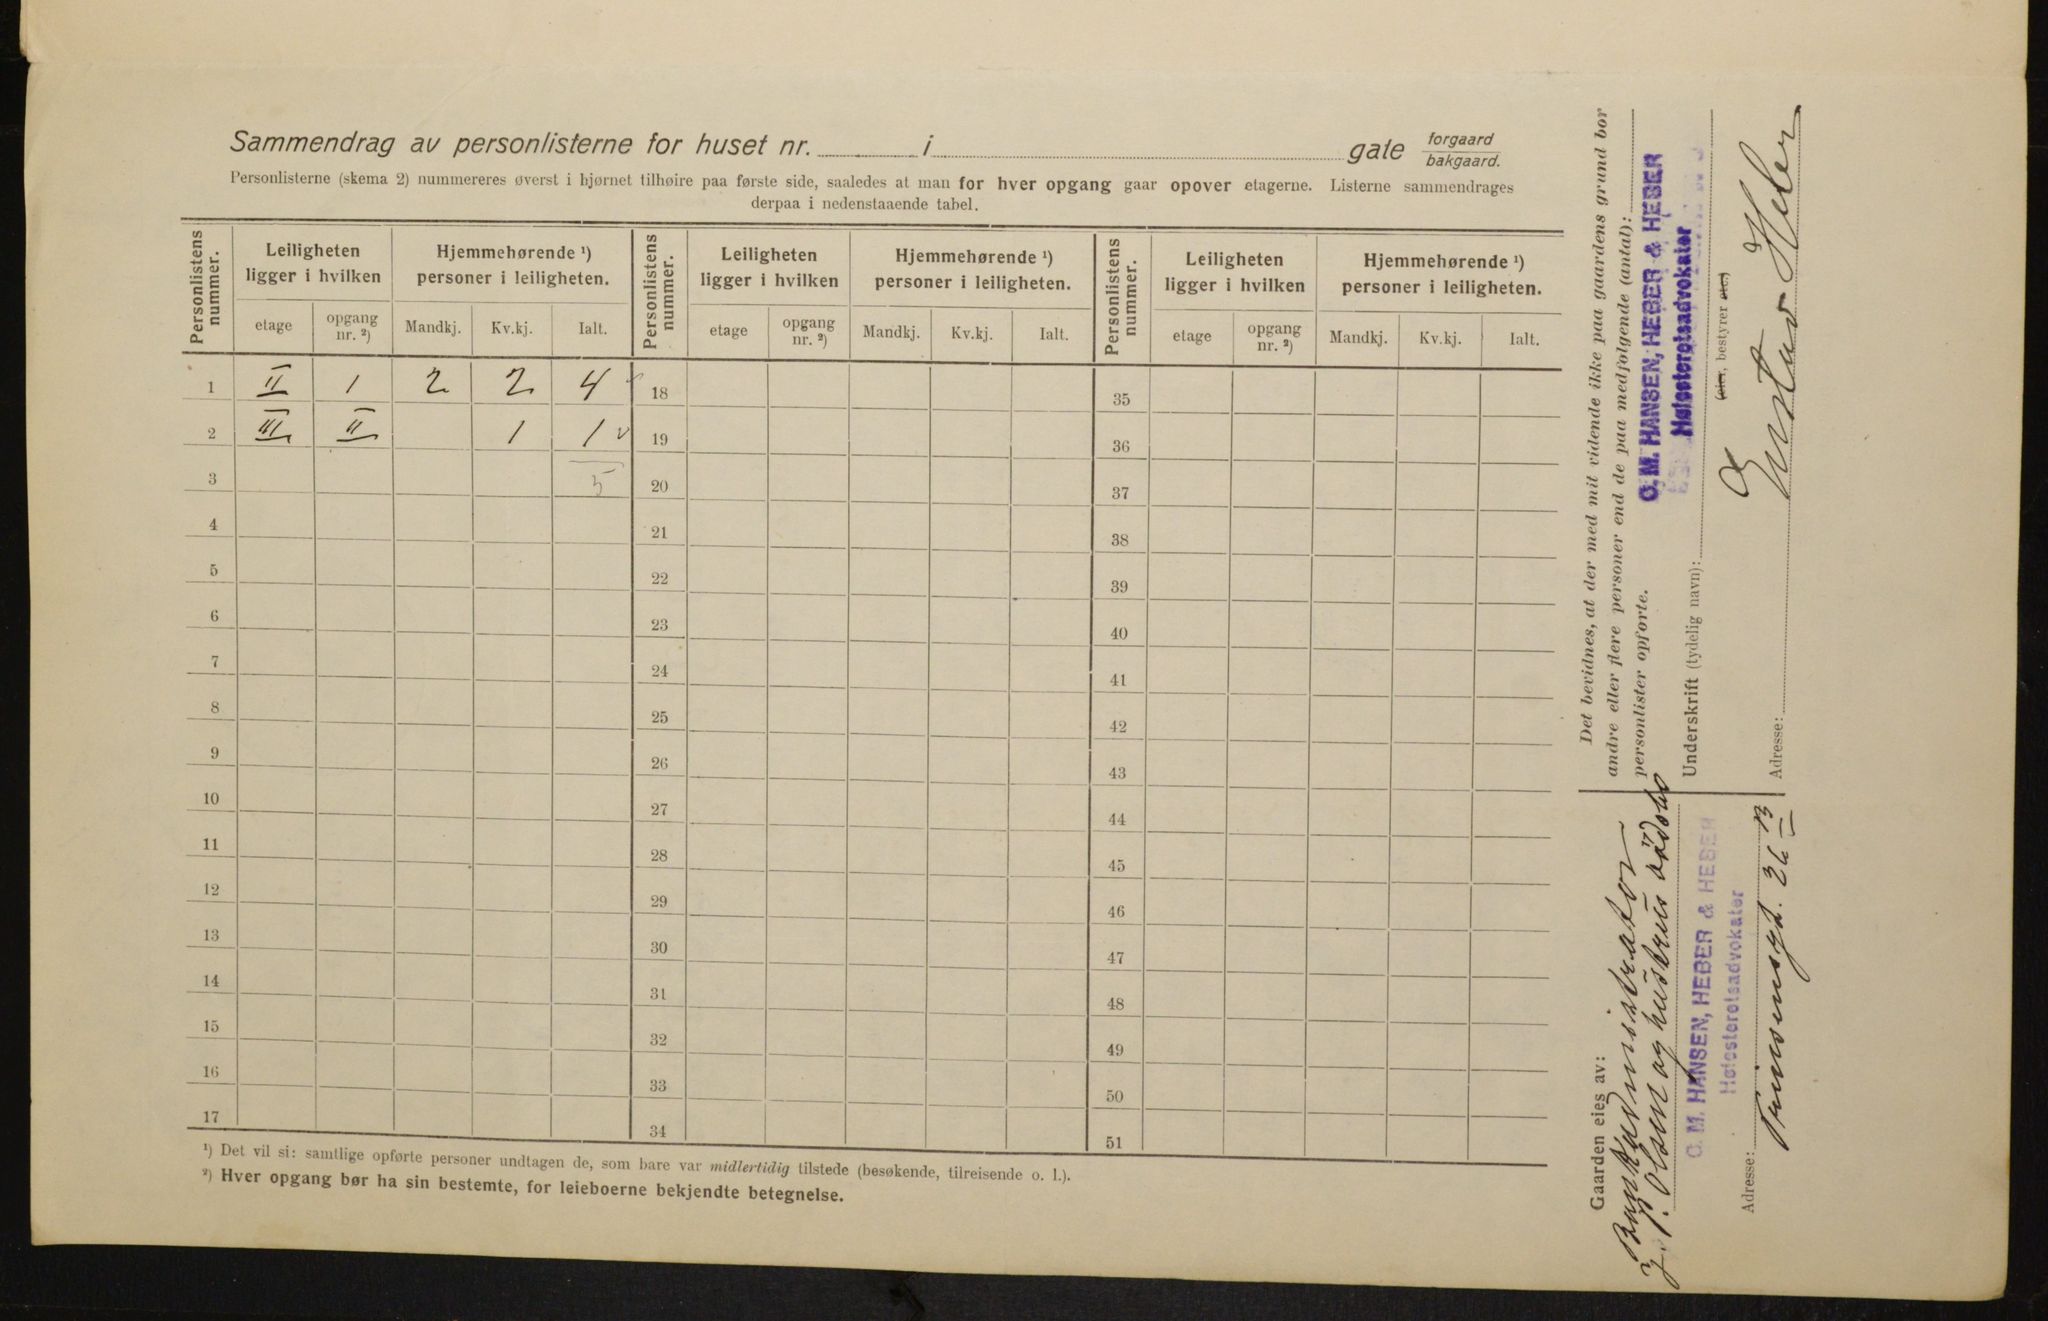 Sammendrag av personlisterne for huset nr. i gate forgaard bakgaard.
Personlisterne (skema 2) nummereres øverst i hjørnet tilhøire paa første side, saaledes at man for hver opgang gaar opover etagerne. Listerne sammendrages
derpaa i nedenstaaende tabel.
Personlistens nummer. Leiligheten ligger i hvilken Hjemmehørende ¹) personer i leiligheten. Personlistens nummer. Leiligheten ligger i hvilken Hjemmehørende ¹) personer i leiligheten. Personlistens nummer. Leiligheten ligger i hvilken Hjemmehørende ¹) personer i leiligheten.
etage opgang nr. ²) Mandkj. Kv.kj. Ialt. etage opgang nr. ²) Mandkj. Kv.kj. Ialt. etage opgang nr. ²) Mandkj. Kv.kj. Ialt.
1 II 1 2 2 4 18 35
2 III II 1 1 19 36
3 5 20 37
4 21 38
5 22 39
6 23 40
7 24 41
8 25 42
9 26 43
10 27 44
11 28 45
12 29 46
13 30 47
14 31 48
15 32 49
16 33 50
17 34 51
¹) Det vil si: samtlige opførte personer undtagen de, som bare var midlertidig tilstede (besøkende, tilreisende o. l.).
²) Hver opgang bør ha sin bestemte, for leieboerne bekjendte betegnelse.
Det bevidnes, at der med mit vidende ikke paa gaardens grund bor
andre eller flere personer end de paa medfølgende (antal):
personlister opførte.
O. M. HANSEN, HEBER & HEBER
Høiesteretsadvokater
Underskrift (tydelig navn):
(eier, bestyrer etc.)
Gustav Heber
Adresse:
Gaarden eies av:
J. P. Olsen og hustrus dødsbo
O. M. HANSEN, HEBER & HEBER
Høiesteretsadvokater
Adresse: Prinsensgt. 26 13